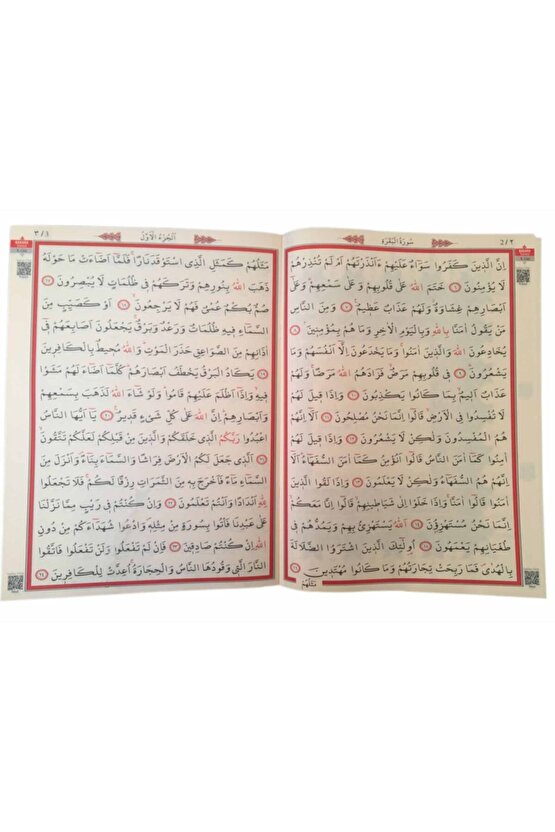 2/٢
سُورَةُ الْبَقَرَةِ
اِنَّ الَّذ۪ينَ كَفَرُوا سَوَٓاءٌ عَلَيْهِمْ ءَاَنْذَرْتَهُمْ اَمْ لَمْ تُنْذِرْهُمْ
لَا يُؤْمِنُونَ ﴿٦﴾ خَتَمَ اللّٰهُ عَلٰى قُلُوبِهِمْ وَعَلٰى سَمْعِهِمْ وَعَلٰٓى
اَبْصَارِهِمْ غِشَاوَةٌ وَلَهُمْ عَذَابٌ عَظ۪يمٌ ﴿٧﴾ وَمِنَ النَّاسِ
مَنْ يَقُولُ اٰمَنَّا بِاللّٰهِ وَبِالْيَوْمِ الْاٰخِرِ وَمَا هُمْ بِمُؤْمِن۪ينَ ﴿٨﴾
يُخَادِعُونَ اللّٰهَ وَالَّذ۪ينَ اٰمَنُوا وَمَا يَخْدَعُونَ اِلَّٓا اَنْفُسَهُمْ وَمَا
يَشْعُرُونَ ﴿٩﴾ ف۪ي قُلُوبِهِمْ مَرَضٌ فَزَادَهُمُ اللّٰهُ مَرَضًا وَلَهُمْ
عَذَابٌ اَل۪يمٌ بِمَا كَانُوا يَكْذِبُونَ ﴿١٠﴾ وَاِذَا ق۪يلَ لَهُمْ
لَا تُفْسِدُوا فِي الْاَرْضِ قَالُٓوا اِنَّمَا نَحْنُ مُصْلِحُونَ ﴿١١﴾ اَلَٓا اِنَّهُمْ
هُمُ الْمُفْسِدُونَ وَلٰكِنْ لَا يَشْعُرُونَ ﴿١٢﴾ وَاِذَا ق۪يلَ لَهُمْ
اٰمِنُوا كَمَٓا اٰمَنَ النَّاسُ قَالُٓوا اَنُؤْمِنُ كَمَٓا اٰمَنَ السُّفَهَٓاءُ اَلَٓا
اِنَّهُمْ هُمُ السُّفَهَٓاءُ وَلٰكِنْ لَا يَعْلَمُونَ ﴿١٣﴾ وَاِذَا لَقُوا الَّذ۪ينَ
اٰمَنُوا قَالُٓوا اٰمَنَّا وَاِذَا خَلَوْا اِلٰى شَيَاط۪ينِهِمْ قَالُٓوا اِنَّا مَعَكُمْ
اِنَّمَا نَحْنُ مُسْتَهْزِؤُ۫نَ ﴿١٤﴾ اَللّٰهُ يَسْتَهْزِئُ بِهِمْ وَيَمُدُّهُمْ ف۪ي
طُغْيَانِهِمْ يَعْمَهُونَ ﴿١٥﴾ اُو۬لٰٓئِكَ الَّذ۪ينَ اشْتَرَوُا الضَّلَالَةَ
بِالْهُدٰى فَمَا رَبِحَتْ تِجَارَتُهُمْ وَمَا كَانُوا مُهْتَد۪ينَ ﴿١٦﴾
مَثَلُهُمْ
٣/3
اَلْجُزْءُ الْاَوَّلُ
مَثَلُهُمْ كَمَثَلِ الَّذِي اسْتَوْقَدَ نَارًا فَلَمَّٓا اَضَٓاءَتْ مَا حَوْلَهُ
ذَهَبَ اللّٰهُ بِنُورِهِمْ وَتَرَكَهُمْ ف۪ي ظُلُمَاتٍ لَا يُبْصِرُونَ ﴿١٧﴾
صُمٌّ بُكْمٌ عُمْيٌ فَهُمْ لَا يَرْجِعُونَ ﴿١٨﴾ اَوْ كَصَيِّبٍ مِنَ
السَّمَٓاءِ ف۪يهِ ظُلُمَاتٌ وَرَعْدٌ وَبَرْقٌ يَجْعَلُونَ اَصَابِعَهُمْ ف۪ٓي
اٰذَانِهِمْ مِنَ الصَّوَاعِقِ حَذَرَ الْمَوْتِ وَاللّٰهُ مُح۪يطٌ بِالْكَافِر۪ينَ
﴿١٩﴾ يَكَادُ الْبَرْقُ يَخْطَفُ اَبْصَارَهُمْ كُلَّمَٓا اَضَٓاءَ لَهُمْ مَشَوْا
ف۪يهِ وَاِذَٓا اَظْلَمَ عَلَيْهِمْ قَامُوا وَلَوْ شَٓاءَ اللّٰهُ لَذَهَبَ بِسَمْعِهِمْ
وَاَبْصَارِهِمْ اِنَّ اللّٰهَ عَلٰى كُلِّ شَيْءٍ قَد۪يرٌ ﴿٢٠﴾ يَٓا اَيُّهَا النَّاسُ
اعْبُدُوا رَبَّكُمُ الَّذ۪ي خَلَقَكُمْ وَالَّذ۪ينَ مِنْ قَبْلِكُمْ لَعَلَّكُمْ تَتَّقُونَ
﴿٢١﴾ اَلَّذ۪ي جَعَلَ لَكُمُ الْاَرْضَ فِرَاشًا وَالسَّمَٓاءَ بِنَٓاءً وَاَنْزَلَ مِنَ
السَّمَٓاءِ مَٓاءً فَاَخْرَجَ بِه۪ مِنَ الثَّمَرَاتِ رِزْقًا لَكُمْ فَلَا تَجْعَلُوا
لِلّٰهِ اَنْدَادًا وَاَنْتُمْ تَعْلَمُونَ ﴿٢٢﴾ وَاِنْ كُنْتُمْ ف۪ي رَيْبٍ مِمَّا نَزَّلْنَا
عَلٰى عَبْدِنَا فَأْتُوا بِسُورَةٍ مِنْ مِثْلِه۪ وَادْعُوا شُهَدَٓاءَكُمْ مِنْ دُونِ
اللّٰهِ اِنْ كُنْتُمْ صَادِق۪ينَ ﴿٢٣﴾ فَاِنْ لَمْ تَفْعَلُوا وَلَنْ تَفْعَلُوا فَاتَّقُوا
النَّارَ الَّت۪ي وَقُودُهَا النَّاسُ وَالْحِجَارَةُ اُعِدَّتْ لِلْكَافِر۪ينَ ﴿٢٤﴾